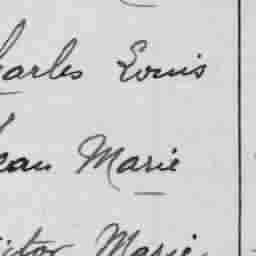 harles Louis
ean Marie
ictor Marie